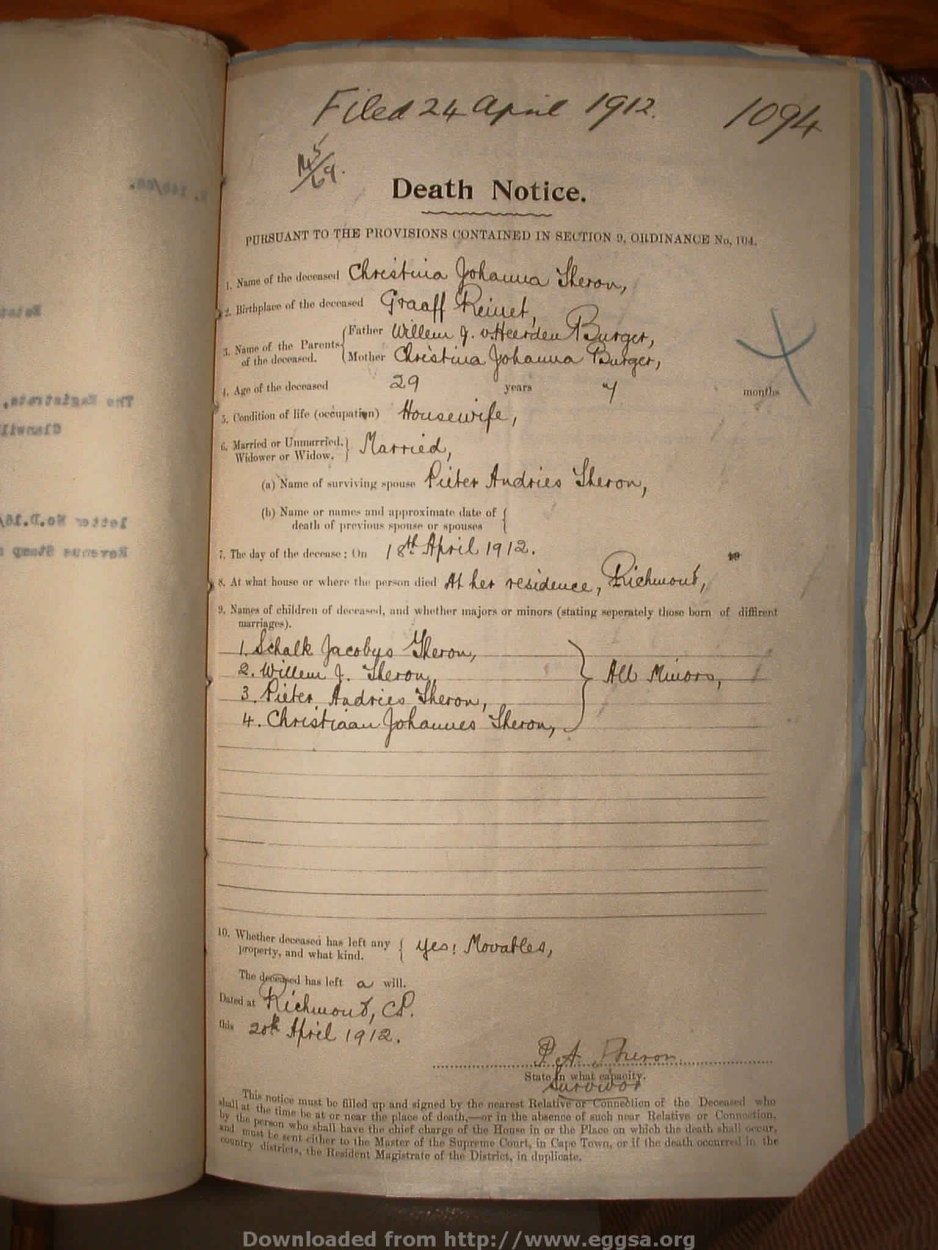 Filed 24 April 1912.
1094
Death Notice.
PURSUANT TO THE PROVISIONS CONTAINED IN SECTION 9, ORDINANCE No, 104.
1. Name of the deceased Christina Johanna Theron,
2. Birthplace of the deceased Graaff Reinet,
3. Name of the Parents of the deceased. { Father Willem J. v. Heerden Burger,
Mother Christina Johanna Burger,
4. Age of the deceased 29 years 7 months
5. Condition of life (occupation) Housewife,
6. Married or Unmarried, Widower or Widow. } Married,
(a) Name of surviving spouse Pieter Andries Theron,
(b) Name or names and approximate date of {
death of previous spouse or spouses
7. The day of the decease: On 18th April 1912.
8. At what house or where the person died At her residence, Richmond,
9. Names of children of deceased, and whether majors or minors (stating seperately those born of diffirent
marriages).
1. Schalk Jacobus Theron,
2. Willem J. Theron,
3. Pieter Andries Theron,
4. Christiaan Johannes Theron,
} All Minors,
10. Whether deceased has left any property, and what kind. { Yes: Movables,
The deceased has left a will.
Dated at Richmond, CP.
this 20th April 1912.
P. A. Theron
State in what capacity.
Survivor
This notice must be filled up and signed by the nearest Relative or Connection of the Deceased who
shall at the time be at or near the place of death,—or in the absence of such near Relative or Connection,
by the person who shall have the chief charge of the House in or the Place on which the death shall occur,
and must be sent either to the Master of the Supreme Court, in Cape Town, or if the death occurred in the
country districts, the Resident Magistrate of the District, in duplicate.
Downloaded from http://www.eggsa.org